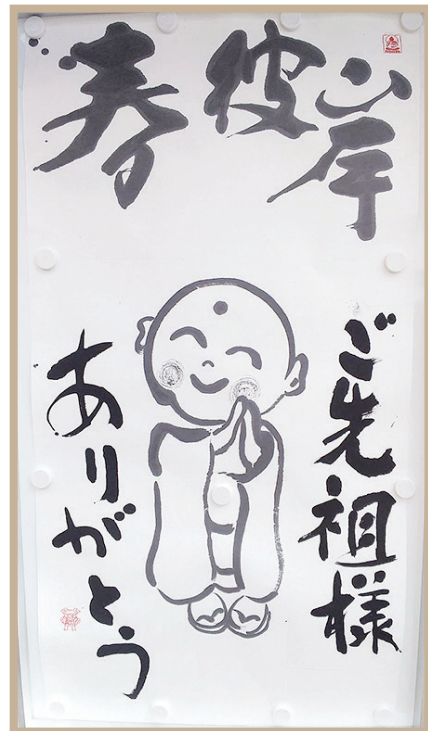 春彼岸
ご先祖様
ありがとう